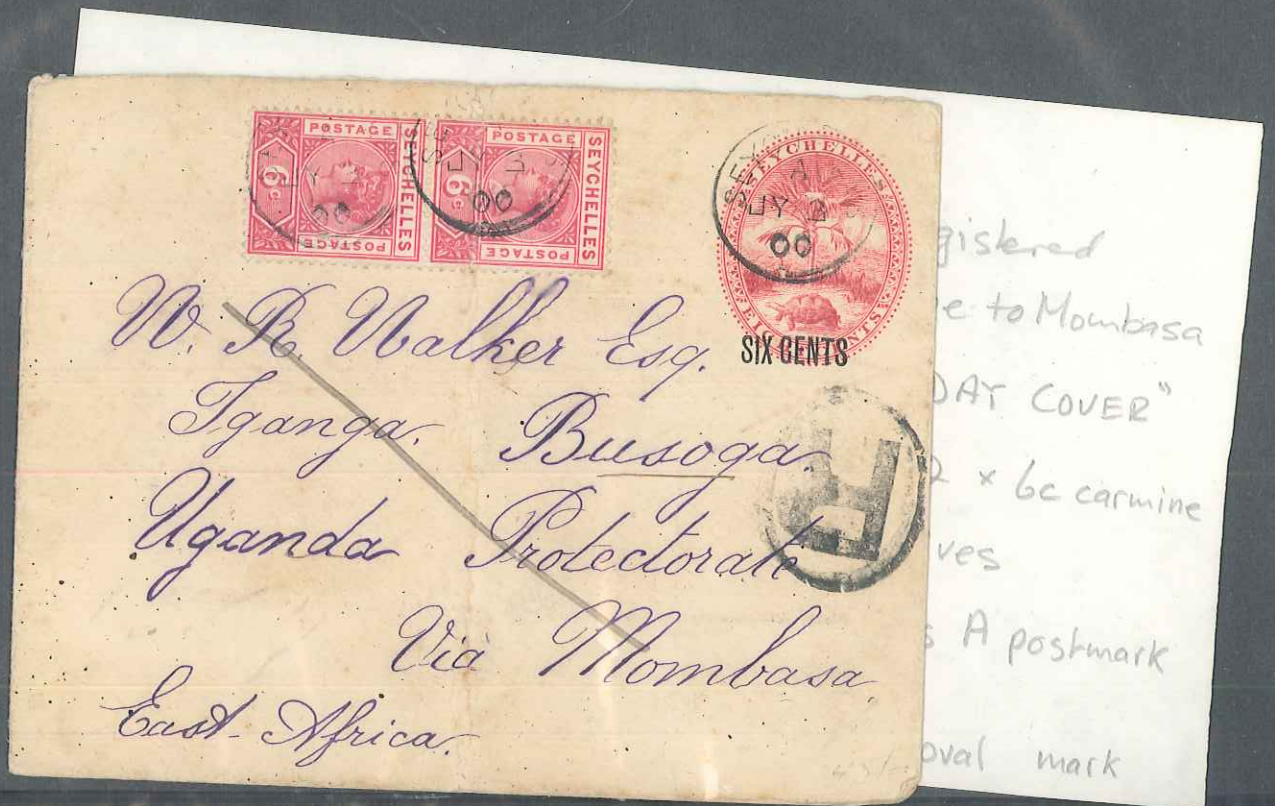 POSTAGE
SEYCHELLES
6c
POSTAGE
POSTAGE
SEYCHELLES
6c
POSTAGE
00
00
SEY
A
JY 2
00
SEYCHELLES
SIX CENTS
W. R. Walker Esq.
Iganga. Busoga.
Uganda Protectorate
Via Mombasa.
East Africa.
R
gistered
e to Mombasa
DAY COVER"
2 x 6c carmine
ves
s A postmark
oval mark